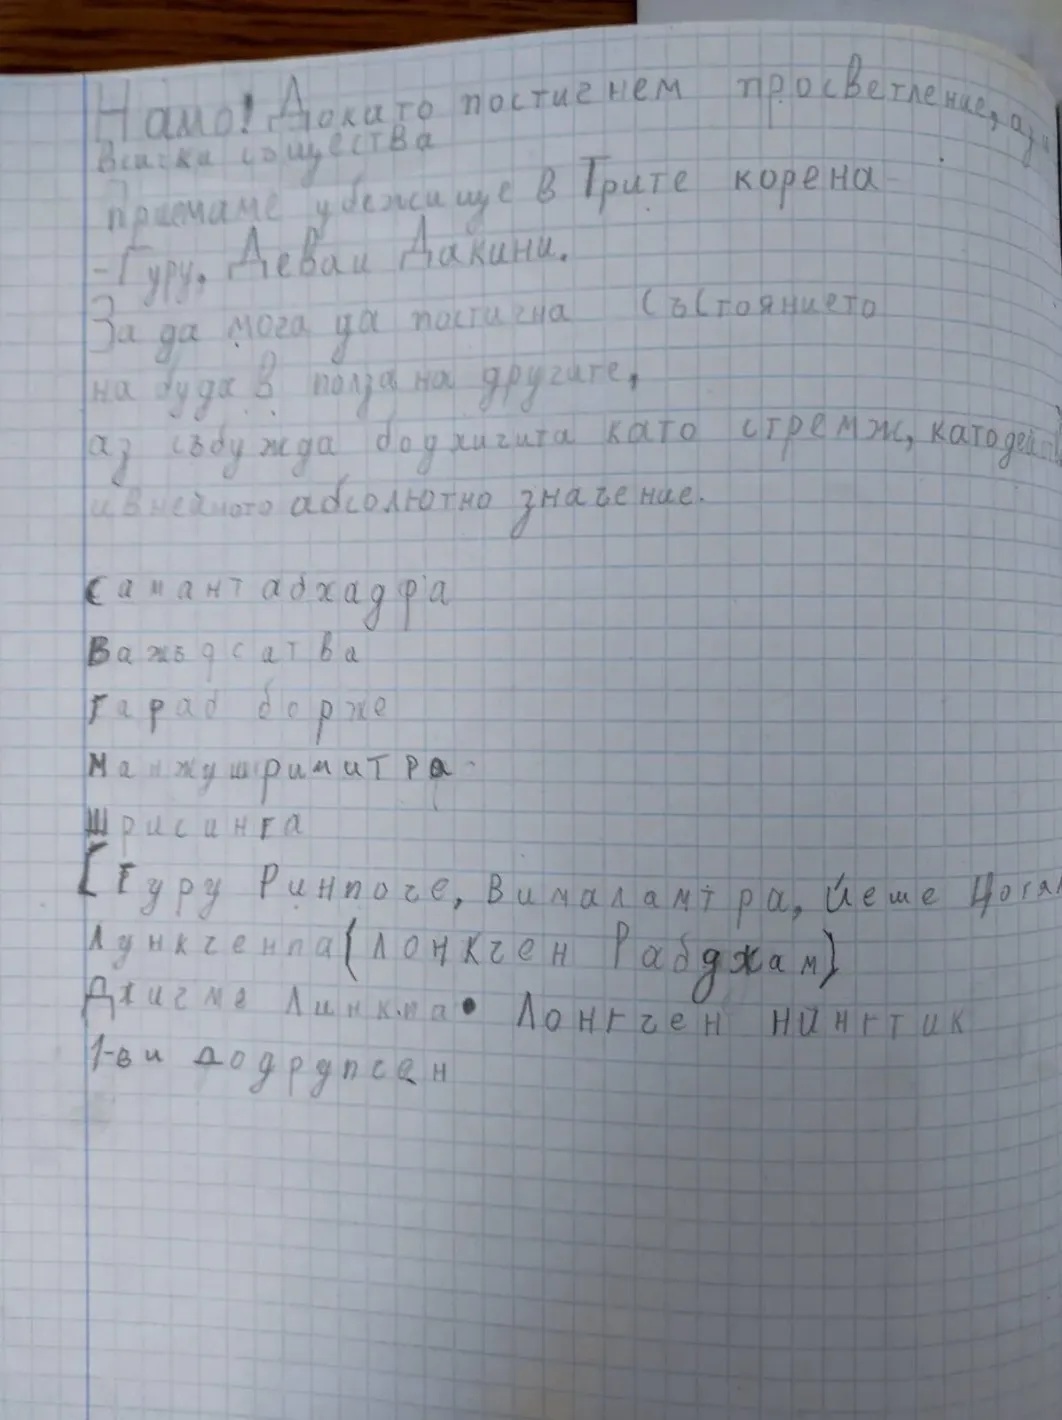 Намо! Докато постигнем просветление, аз и
всички същества
Приемаме убежище в Трите корена
- Гуру, Деваи Дакини.
За да мога да постигна състоянието
на буда в полза на другите,
аз събужда бодхичита като стремж, като
и в нейното абсолютно значение.
Самантабхадра
Важъдсатва
Гараб борже
Манжушримитра
Шрисинга
[Гуру Ринпоче, Вималамтра, Йеше
Лункченпа (Лонкчен Рабджам)
Джигме Линкпа • Лонгчен нингтик
1-ви додрупсен